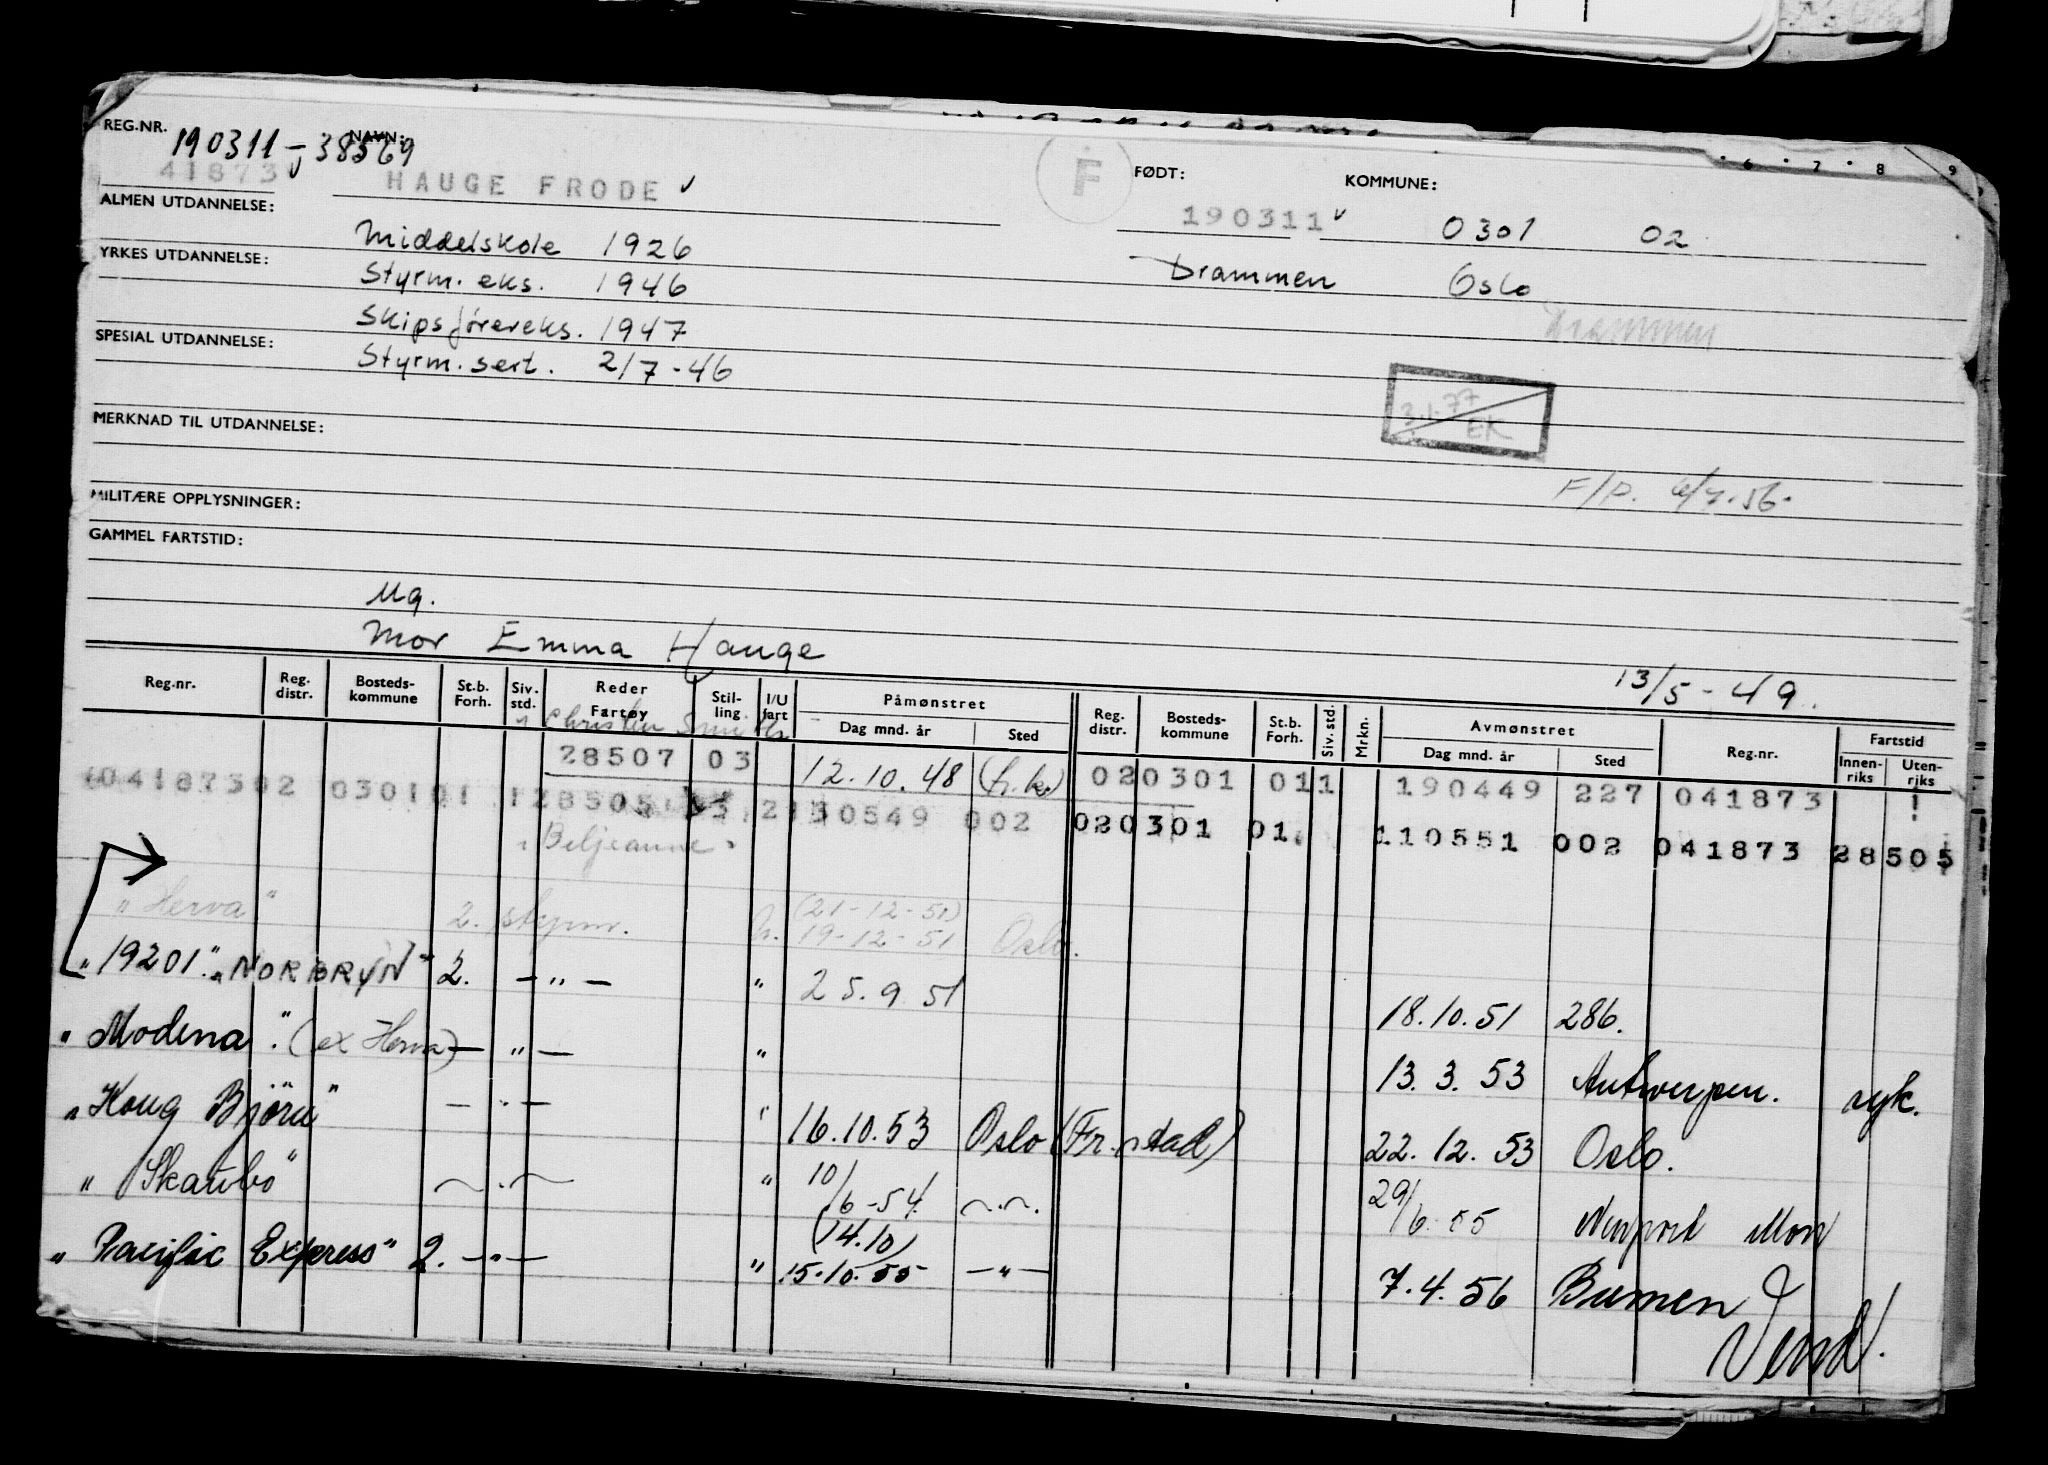 REG.NR. 190311-38569 NAVN:
41873 HAUGE FRODE F FØDT: KOMMUNE:
190311 0301 02
ALMEN UTDANNELSE: Middelskole 1926 Drammen Oslo
YRKES UTDANNELSE: Styrm. eks. 1946
Drammen
Skipsførereks. 1947
SPESIAL UTDANNELSE: Styrm. sert. 2/7-46
3.1.77 EK
MERKNAD TIL UTDANNELSE:
F/P. 6/7-56-
MILITÆRE OPPLYSNINGER:
GAMMEL FARTSTID:
Ug.
Mor Emma Hauge
13/5-49.
Reg.nr. Reg. distr. Bosteds-kommune St.b. Forh. Siv. std. Reder Fartøy Stil-ling I/U fart Påmønstret Dag mnd. år Sted Reg. distr. Bosteds-kommune St.b. Forh. Siv. std. Mrkn. Avmønstret Dag mnd. år Sted Reg.nr. Fartstid Innen-riks Uten-riks
" Christen Smith
28507 03 12.10.48 (h.k.) 020301 011 190449 227 041873
04187302 030101 128505 130549 002 020301 01 110551 002 041873 28505
" Beljeanne "
"Herva" 2. styrm. (21-12-51)
19-12-51 Oslo.
"19201" "NORBRYN" 2. — " — " 25.9.51 18.10.51 286.
"Modena" (ex Herva) — " — " 13.3.53 Antwerpen. syk.
"Kong Bjørn" — " — " 16.10.53 Oslo (Fr.stad) 22.12.53 Oslo.
"Skaubo" " 10/6-54 29/6-55 Newport Mon
"Pacific Express" 2. — " — " (14.10)
15.10.55 — " — 7.4.56 Bremen
Vend!
6 7 8 9